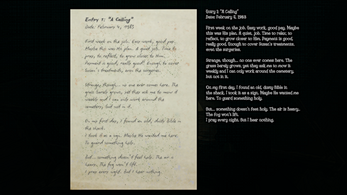 Entry 1: "A Calling"
Date: February 1983
First week on the job. Easy work, good pay.
Maybe this was His plan. A quiet job. Time to
relax, to reflect, to grow closer to Him.
Payment is good, really good. Enough to cover
treatments, even the surgeries.
Strange, though... no one ever comes here. The
grass barely grows, yet they ask me to mow it
weekly and I can only work around the
cemetery, but not in it.
On my first day, I found an old, dusty Bible
in the shack.
I took it as a sign. Maybe He wanted me here.
To guard something holy.
But... something doesn't feel holy. The air is
heavy. The fog won't lift.
I pray every night. But I hear nothing.
Entry 1 "A Calling"
Date: February 1983
First week on the job. Easy work, good pay. Maybe
this was His plan. A quiet job. Time to relax, to
reflect, to grow closer to Him. Payment is good,
really good. Enough to cover treatments,
even the surgeries.
Strange, though... no one ever comes here. The
grass barely grows, yet they ask me to mow it
weekly and I can only work around the cemetery,
but not in it.
On my first day, I found an old, dusty Bible in
the shack. I took it as a sign. Maybe He wanted me
here. To guard something holy.
But... something doesn't feel holy. The air is heavy.
The fog won't lift.
I pray every night. But I hear nothing.